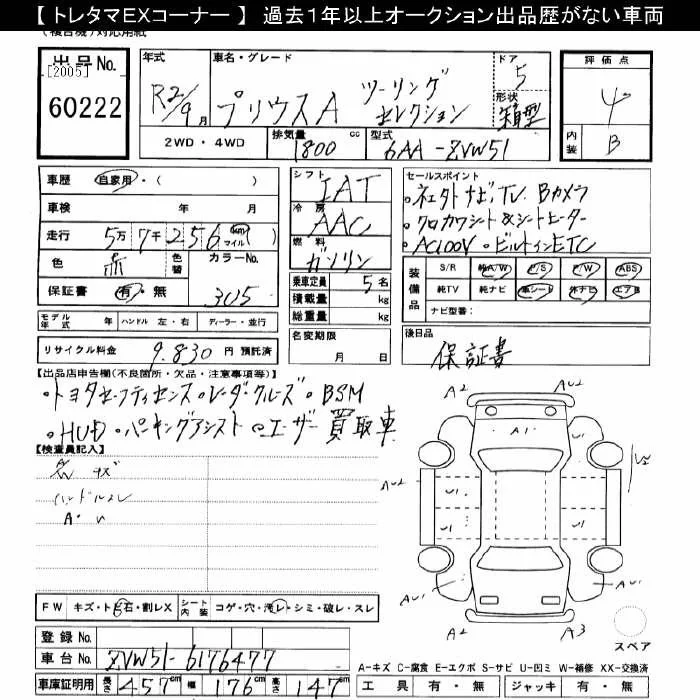 【 トレタマEXコーナー 】 過去1年以上オークション出品歴がない車両
(複合機)対応用紙
出品No.
[2005]
60222
年式
R2/9月
車名・グレード
プリウスA ツーリングセレクション
ドア
5
形状
箱型
評価点
4
内装
B
2WD ・ 4WD
排気量
1800 cc
型式
6AA-ZVW51
車歴
自家用・( )
車検 年 月
走行 5万7千256 km マイル ( )
色 赤
色替
カラーNo.
3U5
保証書 有・無
モデル年式
ハンドル 左・右
ディーラー・並行
リサイクル料金 9,830 円 預託済
シフト
IAT
冷房
AAC
燃料
ガソリン
乗車定員 5名
積載量 kg
総重量 kg
名変期限
月 日
セールスポイント
・ネエタト ナビ,TV Bカメラ
・クロカワシート&シートヒーター
・AC100V ・ビルトインETC
装備品
S/R 純A/W P/S P/W ABS
純TV 純ナビ 革シート 社外ナビ エアB
ナビ型番:
後日品
保証書
【出品店申告欄(不良箇所・欠品・注意事項等)】
・トヨタセーフティセンス・レーダークルーズ・BSM
・HUD・パーキングアシスト・ユーザー買取車
【検査員記入】
ハンドルスレ
A・U
FW キズ・トビ石・割レX
シート内装 コゲ・穴・汚レ・シミ・破レ・スレ
登録No.
車台No. ZVW51-6176477
車庫証明用 長さ 457cm 幅 176cm 高さ 147cm
A2 AU2
A1
AU2 U1 U1
U1 U1
AU1 AU1
A2 A3
スペア
A-キズ C-腐食 E-エクボ S-サビ U-凹ミ W-補修 XX-交換済
工具 有・無 ジャッキ 有・無